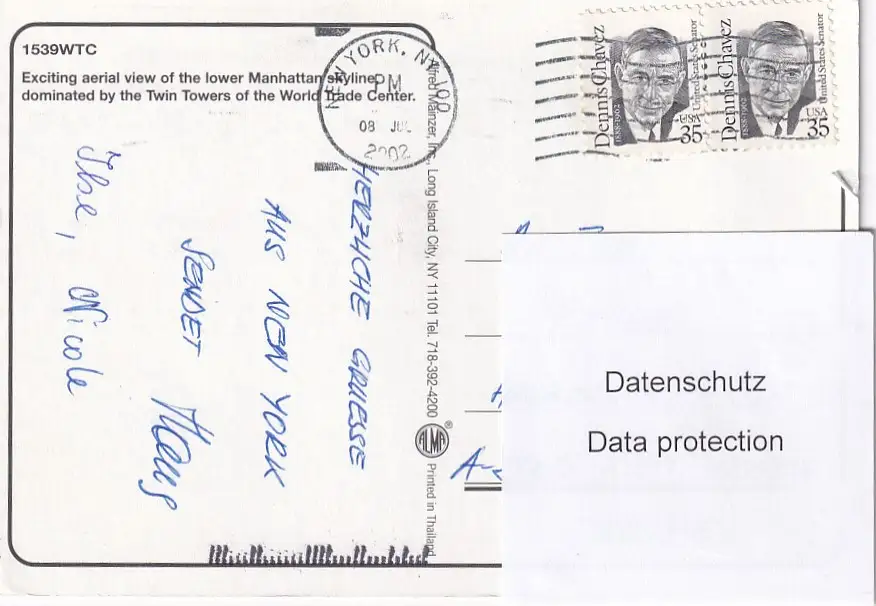 1539WTC
Exciting aerial view of the lower Manhattan skyline,
dominated by the Twin Towers of the World Trade Center.
NEW YORK, NY 100
PM
08 JUL
2002
Dennis Chavez
1888-1962
United States Senator
USA
35
Dennis Chavez
1888-1962
United States Senator
USA
35
HERZLICHE GRUESSE
AUS NEW YORK
SENDET
Hans
Ilse, Nicole
Alfred Mainzer, Inc., Long Island City, NY 11101 Tel. 718-392-4200
ALMA®
Printed in Thailand
A-
Datenschutz
Data protection